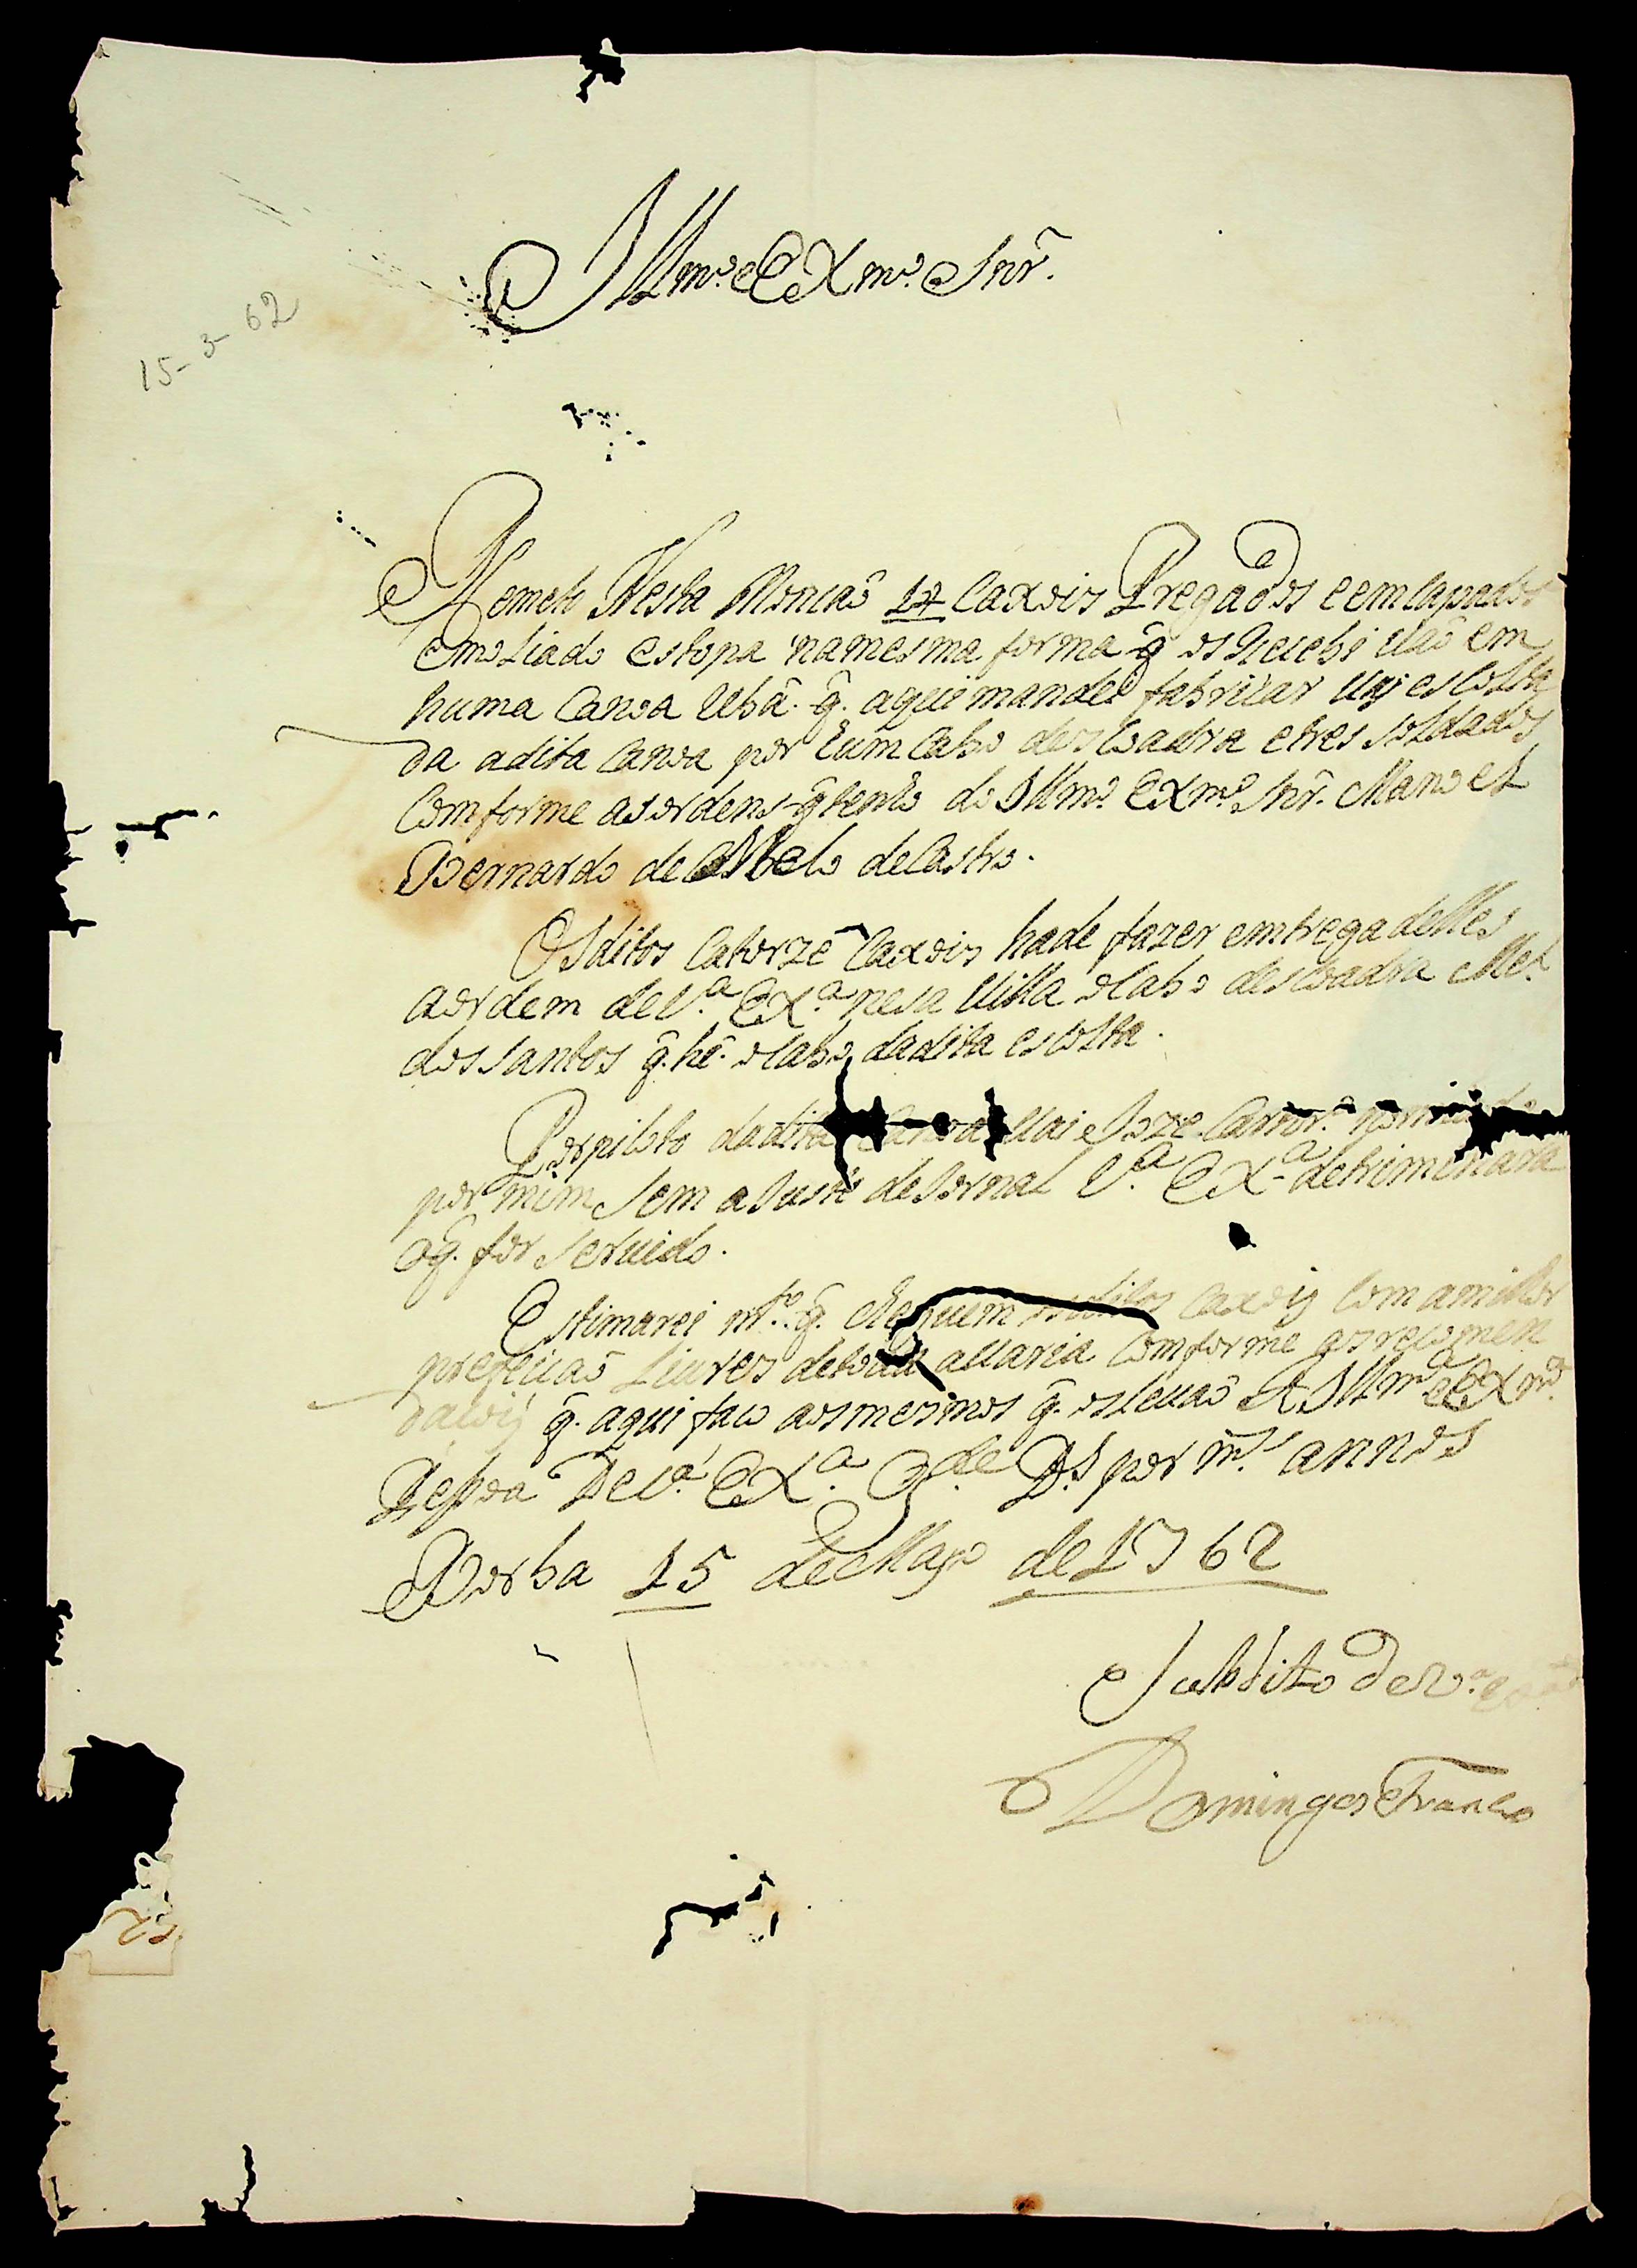 15-3-62
Illmo. e Exmo. Snr̃.
Remeto Nesta Moncaõ 14 Caxois Pregados e emcapados
emoliado estopa na mesma forma q̃ os Recebi Vaõ em
huma Canoa Ubã. q̃. aqui mandei fabricar Vaj escolta
da adita Canoa por hum Cabo de escoadra e tres soldados
Comforme as ordens q̃ tenho do Illmo. Exmo. Snr̃. Manoel
Bernardo de Melo de Castro.
Os ditos Catorze Caxois hade fazer emtrega delles
a ordem de Va. Exa. nesa Villa o Cabo de escoadra Mel.
dos santos q̃. hé. o Cabo da dita escolta.
Por piloto da dita Canoa Vai Joze
por mim sem ajuste de Jornal Va. Exa. detriminara
o q̃. for servido.
Estimarei mto. q̃. cheguem os ditos Caxois Com a milhor
prefeicaõ Livres de toda avaria Comforme as recomen
dacois q̃. aqui faco aos mesmos q̃. os levaõ A Illma. e Exma.
Pessoa De Va. Exa. Gde. Ds. por ms. annos
Borba 15 de Março de 1762
Subdito de Va.
Domingos Franco